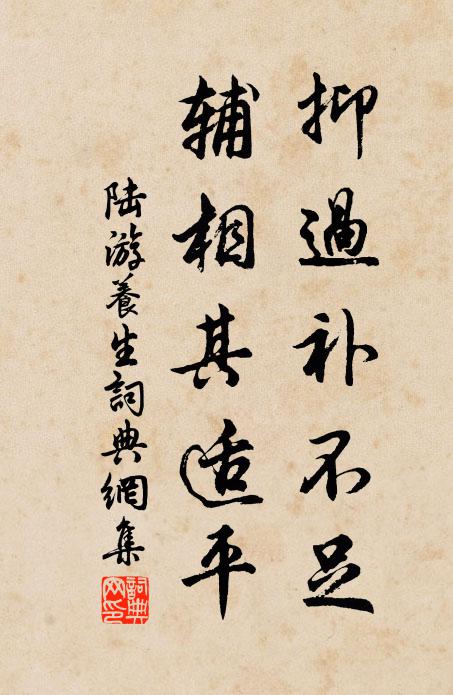 抑過补不足
辅相其适平
陆游養生詞典網集
詞典网印